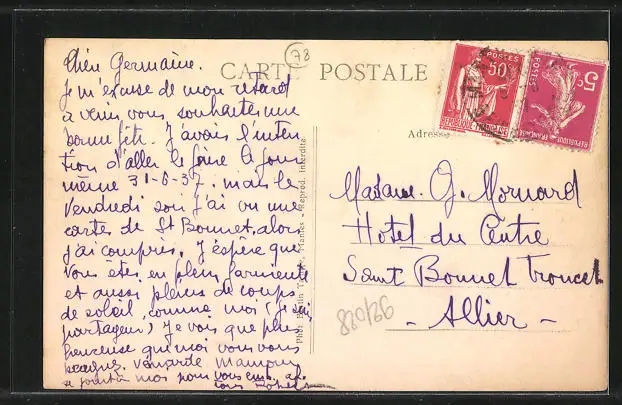 Chère Germaine.
Je m'excuse de mon retard
à venir vous souhaiter une
bonne fête. J'avais l'inten
tion d'aller le faire le jour
même 31-6-37. mais le
Vendredi soir j'ai vu une
cartes de St Bonnet, alors
j'ai compris. J'espère que
vous êtes en plein farniente
et aussi pleins de coups
de soleil, comme moi (je
partageur) Je vois que plus
heureuse que moi vous vous
Mamour
se joint à moi pour vous emb.
tous
78
CARTE POSTALE
Adresse
Nantes - Reprod. Interdite
POSTES
50c
REPUBLIQUE FRANÇAISE
POSTES
5c
REPUBLIQUE FRANÇAISE
Madame G. Mornard
Hotel du Centre
Saint Bonnet Troncet
- Allier -